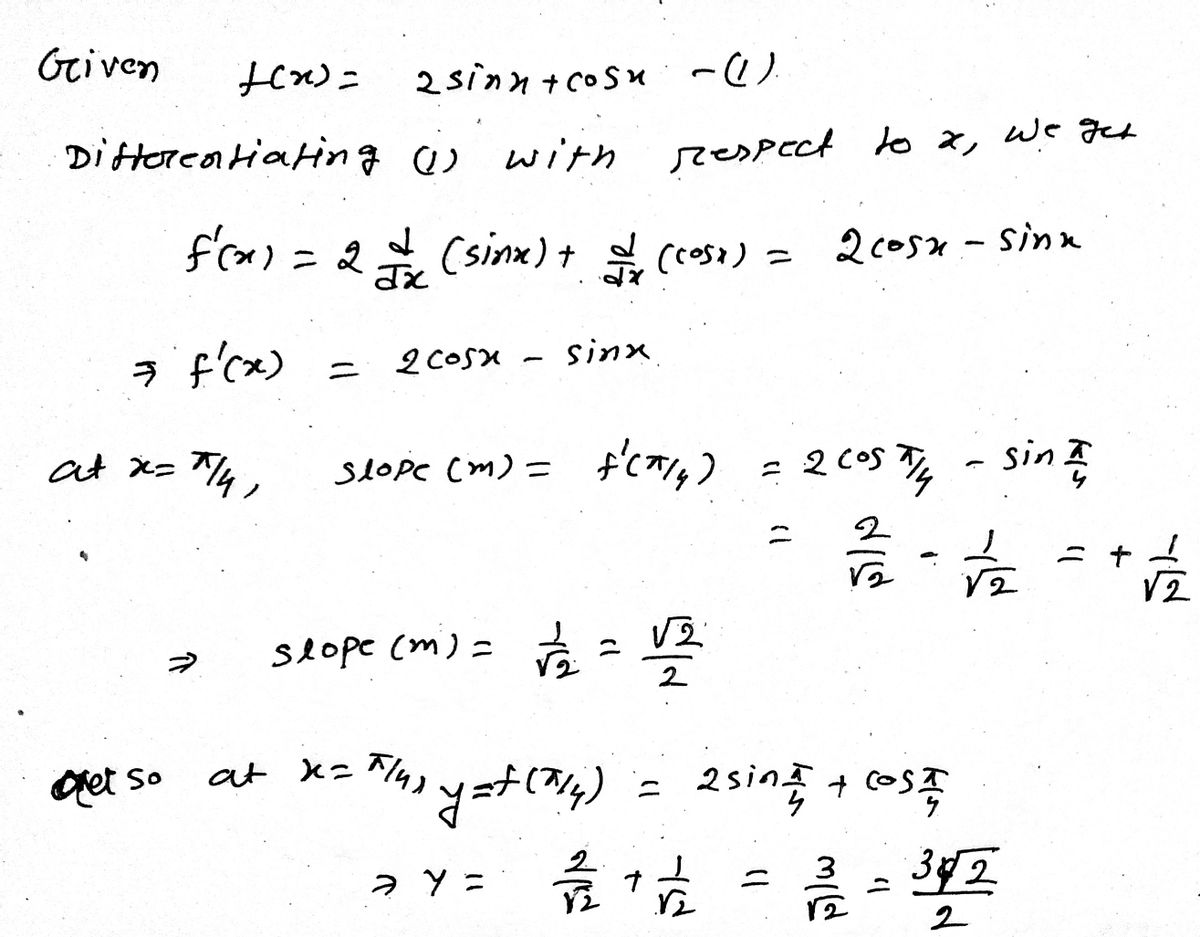 Given f(x) = 2 sinx + cosx - (1)
Differentiating (1) with respect to x, we get
f'(x) = 2 d/dx (sinx) + d/dx (cosx) = 2cosx - sinx
⇒ f'(x) = 2cosx - sinx
at x = π/4, slope (m) = f'(π/4) = 2 cos π/4 - sin π/4
= 2/√2 - 1/√2 = + 1/√2
⇒ slope (m) = 1/√2 = √2/2
so at x = π/4, y = f(π/4) = 2 sin π/4 + cos π/4
⇒ y = 2/√2 + 1/√2 = 3/√2 = 3√2/2